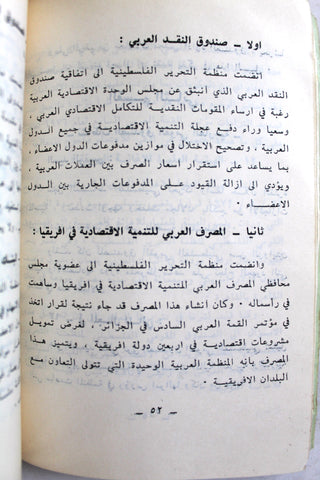 اولا – صندوق النقد العربي :
انضمت منظمة التحرير الفلسطينية الى اتفاقية صندوق
النقد العربي الذي انبثق عن مجلس الوحدة الاقتصادية العربية
رغبة في ارساء المقومات النقدية للتكامل الاقتصادي العربي ،
وسعيا وراء دفع عجلة التنمية الاقتصادية في جميع الدول
العربية ، وتصحيح الاختلال في موازين مدفوعات الدول الاعضاء ،
بما يساعد على استقرار اسعار الصرف بين العملات العربية ،
ويؤدي الى ازالة القيود على المدفوعات الجارية بين الدول
الاعضاء ٠
ثانيا – المصرف العربي للتنمية الاقتصادية في افريقيا :
وانضمت منظمة التحرير الفلسطينية الى عضوية مجلس
محافظي المصرف العربي للتنمية الاقتصادية في افريقيا وساهمت
في رأسماله ٠ وكان انشاء هذا المصرف قد جاء نتيجة لقرار اتخذ
في مؤتمر القمة العربي السادس في الجزائر ، لغرض تمويل
مشروعات اقتصادية في اربعين دولة افريقية ، ويتميز هذا
المصرف بانه المنظمة العربية الوحيدة التي تتولى التعاون مع
البلدان الافريقية ٠
– ٥٢ –